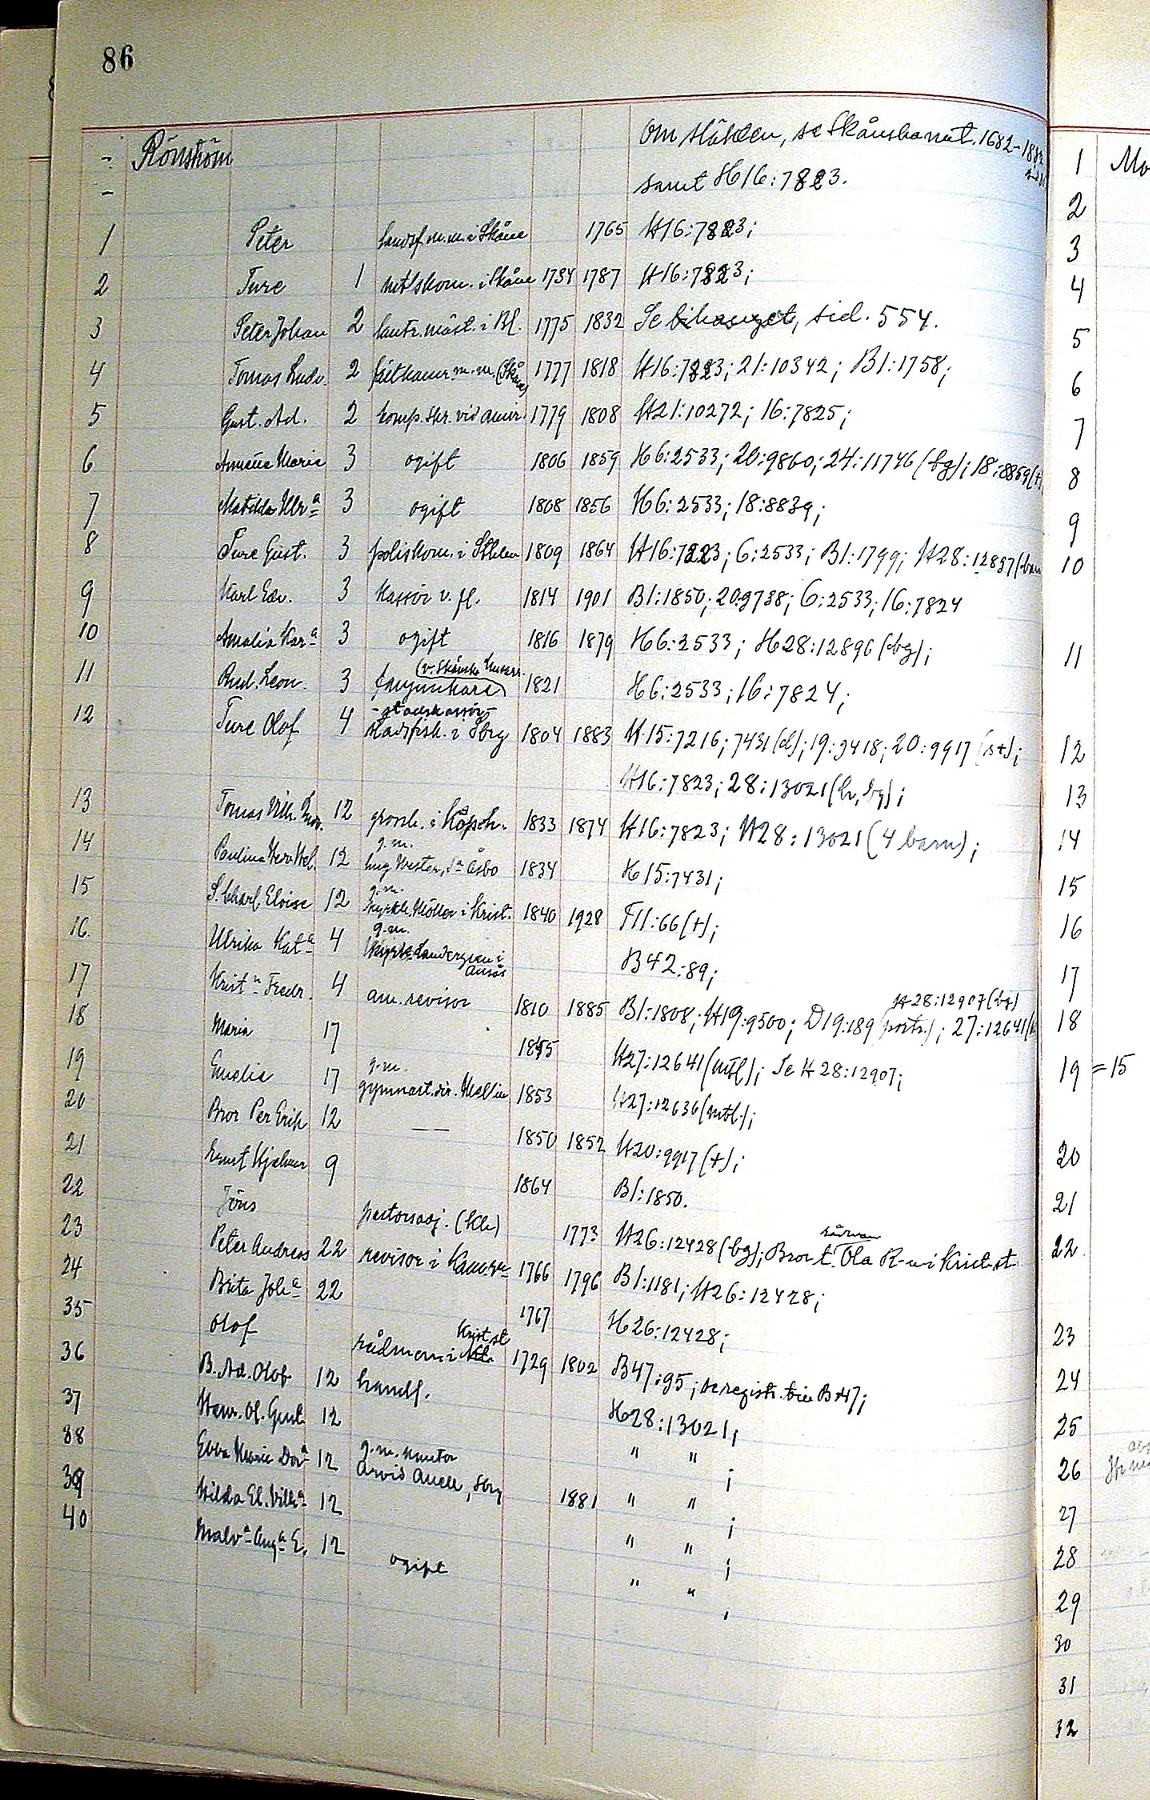 86
- Rönström Om släkten, se Skånska nat. 1682-
- samt H16:7823.
1 Peter landsf. m.m. i Skåne 1765 H16:7823;
2 Ture 1 i Skåne 1734 1787 H16:7823;
3 Peter Johan 2 i Bl. 1775 1832 Se bihanget, sid. 554.
4 Tomas Ludv. 2 fältkamr. m.m. (Skåne) 1777 1818 H16:7823; 21:10342; B1:1758;
5 Gust. Ad. 2 komp. skr. vid amir. 1779 1808 H21:10272; 16:7825;
6 Maria 3 ogift 1806 1859 H6:2533; 20:9860; 24:11746 (bg); 18:8859 (+)
7 Matilda Ulr:a 3 ogift 1808 1856 H6:2533; 18:8839;
8 Ture Gust. 3 poliskom. i Sthlm 1809 1864 H16:7823; 6:2533; B1:1799; H28:12897 (barn
9 Karl Edv. 3 Kassör v. fl. 1814 1901 B1:1850; 20:9738; 6:2533; 16:7824
10 Amalia Kar:a 3 ogift 1816 1879 H6:2533; H28:12896 (bg);
(v. Skånska husarr.
11 Rud. Leon. 3 fanjunkare 1821 H6:2533; 16:7824;
-stadskassör-
12 Ture Olof 4 i Sbg 1804 1883 H15:7216; 7431 (d); 19:9418; 20:9917 (st);
H16:7823; 28:13021 (h, bg);
13 Tomas Vilh. 12 grossh. i Köpenh. 1833 1874 H16:7823; H28:13021 (4 barn);
g.m.
14 Paulina 12 Wester, Åsbo 1834 H15:7431;
g.m.
15 S. Charl. Eloise 12 Möller i Krist. 1840 1928 F11:66 (+);
g.m.
16 Ulrika Kat:a 4 i B42:89;
Åhus
H28:12907 (bg)
17 Krist:n Fredr. 4 am. revisor 1810 1885 B1:1808; H19:9500; D19:189 (portr.); 27:12641
18 Maria 17 1845 H27:12641 (mtl); Se H28:12907;
g.m.
19 Emelie 17 gymnast.dir. Mellin 1853 H27:12636 (mtl.);
20 Bror Per Erik 12 — 1850 1852 H20:9917 (+);
21 Ernst Hjalmar 9 1864 B1:1850.
22 Jöns pastorsadj. 1773 H26:12428 (bg); Bror t. Ola R-m i Krist.st
23 Peter Andreas 22 revisor i 1766 1796 B1:1181; H26:12428;
24 Brita Joh:a 22 1767 H26:12428;
Krist.st
35 Olof rådman i 1729 1802 B47:95; se registr. till B47;
36 B. Ad. Olof 12 handl. H28:13021;
37 Henr. Ol. Gust. 12 " " ;
g.m.
38 Ebba Maria Dor:a 12 Arvid Anell, Sbg 1881 " " ;
39 Hilda El. Vilh:a 12 " " ;
40 Malv:a Aug:a E. 12 ogift " " ;
1 Mo
2
3
4
5
6
7
8
9
10
11
12
13
14
15
16
17
18
19 = 15
20
21
22
23
24
25
26
27
28
29
30
31
32